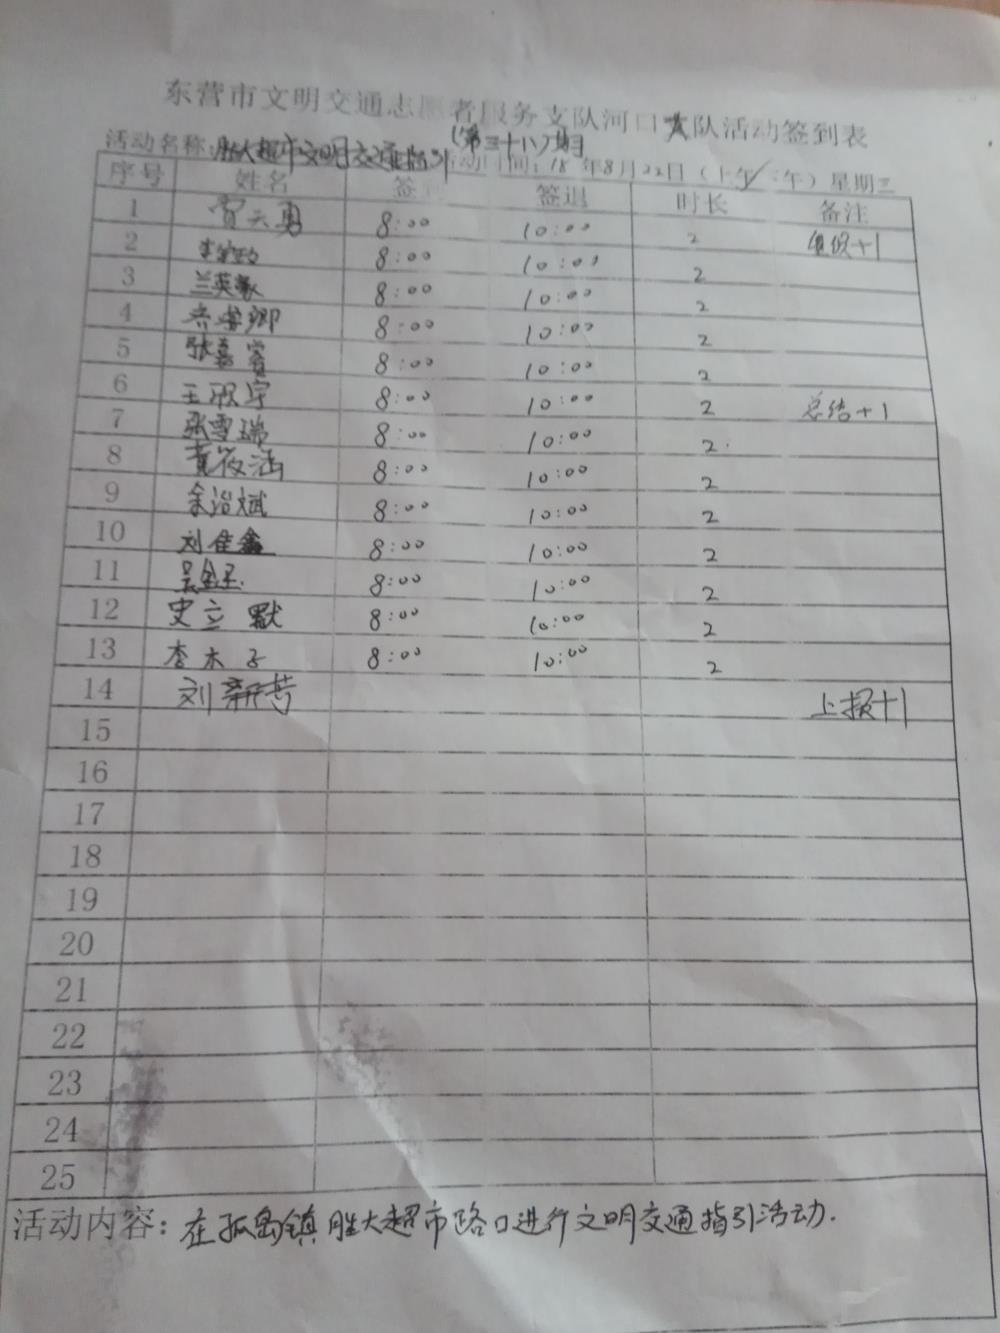 东营市文明交通志愿者服务支队河口大队活动签到表
活动名称:胜大超市文明交通指引(第三十八)期 活动时间:18年8月22日(上午/下午)星期三
序号 姓名 签到 签退 时长 备注
1 贾天勇 8:00 10:00 2
2 8:00 10:00 2
3 兰英豪 8:00 10:00 2
4 8:00 10:00 2
5 张嘉宾 8:00 10:00 2
6 王 宇 8:00 10:00 2 总结+1
7 张雪瑞 8:00 10:00 2
8 黄筱涵 8:00 10:00 2
9 余治斌 8:00 10:00 2
10 刘佳鑫 8:00 10:00 2
11 吴金玉 8:00 10:00 2
12 史立默 8:00 10:00 2
13 李木子 8:00 10:00 2
14 刘新芳 上报+1
15
16
17
18
19
20
21
22
23
24
25
活动内容:在孤岛镇胜大超市路口进行文明交通指引活动.